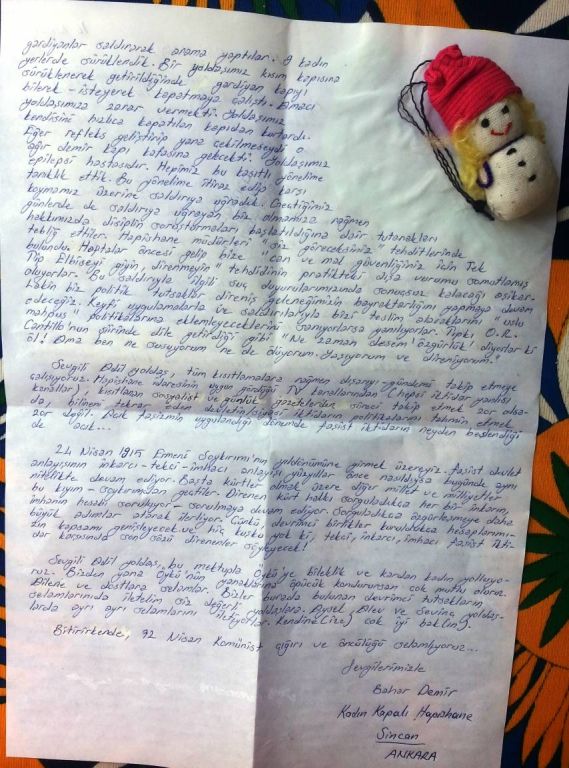 gardiyanlar saldırarak arama yaptılar. 9 kadın
yerlerde sürüklendik. Bir yoldaşımız kısım kapısına
sürüklenerek getirildiğinde gardiyan kapıyı
bilerek - isteyerek kapatmaya çalıştı. Amacı
yoldaşımıza zarar vermekti. Yoldaşımız
kendisini hızlıca kapatılan kapıdan kurtardı.
Eğer refleks geliştirip yana çekilmeseydi o
ağır demir kapı kafasına gelecekti. Yoldaşımız
epilepsi hastasıdır. Hepimiz bu kasıtlı yönelime
tanıklık ettik. Bu yönelime itiraz edip karşı
koymamız üzerine saldırıya uğradık. Geçtiğimiz
günlerde de saldırıya uğrayan biz olmamıza rağmen
hakkımızda disiplin soruşturmaları başlatıldığına dair tutanakları
tebliğ ettiler. Hapishane müdürleri "siz göreceksiniz" tehditlerinde
bulundu. Haftalar öncesi gelip bize "can ve mal güvenliğiniz için Tek
Tip Elbiseyi giyin, direnmeyin" tehdidinin pratikteki dışa vurumu somutlamış
oluyorlar. Bu saldırıyla ilgili suç duyurularımızında sonuçsuz kalacağı aşikar.
Lakin biz politik tutsaklar direniş geleneğimizin bayraktarlığını yapmaya devam
edeceğiz. Keyfi uygulamalarla ve saldırılarıyla bizi "teslim alacaklarını" "uslu
mahpus" politikalarına ekleyeceklerini sanıyorlarsa yanılıyorlar. Tıpkı O.R.
Cantillo'nun şiirinde dile getirdiği gibi "Ne zaman desem özgürlük diyorlar ki
öl! Ama ben ne susuyorum ne de ölüyorum. Yazıyorum ve direniyorum."
Sevgili Adil yoldaş, tüm kısıtlamalara rağmen dışarıyı-gündemi takip etmeye
çalışıyoruz. Hapishane idaresinin uygun gördüğü TV kanallarından (hepsi iktidar yanlısı
kanallar), kısıtlanan sosyalist ve günlük gazetelerden süreci takip etmek zor olsa-
da, bilineni tekrar eden devletin/siyasi iktidarın politikalarını tahmin etmek
zor değil. Açık faşizmin uygulandığı dönemde faşist iktidarın neyden beslendiği
de açık...
24 Nisan 1915 Ermeni Soykırımı'nın yıldönümüne girmek üzereyiz. Faşist devlet
anlayışının inkarcı-tekçi-imhacı anlayışı yüzyıllar önce nasıldıysa bugünde aynı
nitelikte devam ediyor. Başta kürtler olmak üzere diğer millet ve milliyetler
bu kıyım-soykırımdan geçtiler. Direnen kürt halkı sorguladıkça her bir inkarın,
imhanın hesabı soruluyor-sorulmaya devam ediyor. Sorgulandıkça özgürleşmeye daha
büyük adımlar atarak ilerliyor. Çünkü, devrimci birlikler kuruldukça hesaplarımı-
zın kapsamı genişleyecek ve hiç kuşku yok ki, tekçi, inkarcı, imhacı faşist ikti-
dar karşısında son sözü direnenler söyleyecek!
Sevgili Adil yoldaş, bu mektupla Öykü'ye bileklik ve kardan kadın yolluyo-
ruz. Bizden yana Öykü'nün yanaklarına öpücük kondurursan çok mutlu oluruz.
Dilene ve dostlara selamlar. Bizler burada bulunan devrimci tutsakların
selamlarınıda ilettelim siz değerli yoldaşlara. Aysel, Alev ve Sevinç yoldaş-
larda ayrı ayrı selamlarını iletiyorlar. Kendine(ize) çok iyi bak(ın).
Bitirirkende, 92 Nisan Komünist çığırı ve öncülüğü selamlıyoruz...
Sevgilerimizle
Bahar Demir
Kadın Kapalı Hapishane
Sincan
ANKARA